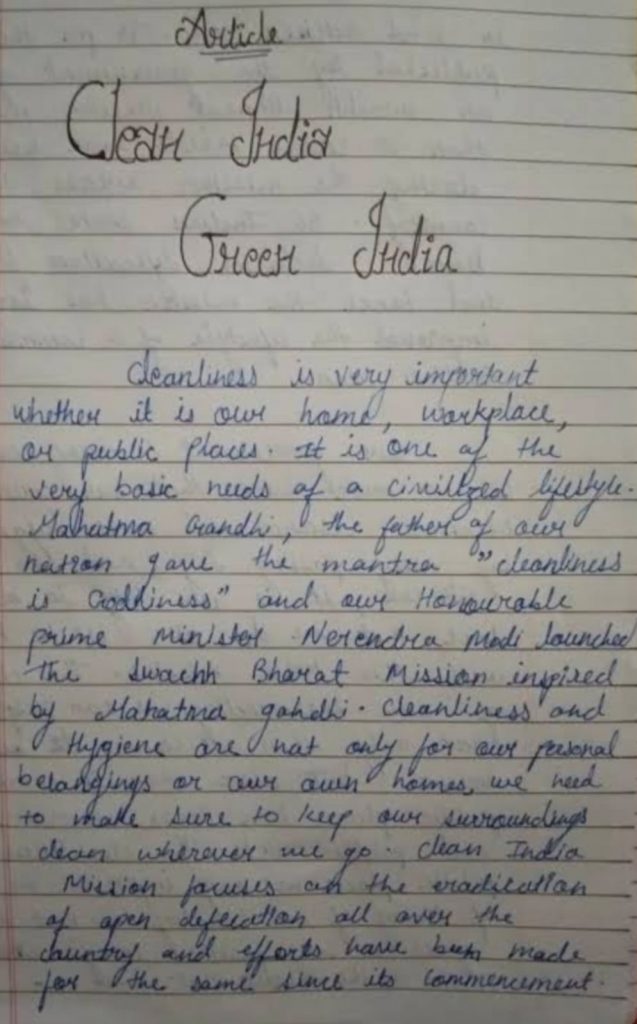 Article
Clean India
Green India
Cleanliness is very important
whether it is our home, workplace,
or public places. It is one of the
very basic needs of a civilized lifestyle.
Mahatma Gandhi, the father of our
nation gave the mantra "cleanliness
is Godliness" and our Honourable
prime Minister Nerendra Modi launched
The Swachh Bharat Mission inspired
by Mahatma gandhi. Cleanliness and
Hygiene are not only for our personal
belangings or our own homes, we need
to make sure to keep our surroundings
clean wherever we go. Clean India
Mission focuses on the eradication
of open defecation all over the
country and efforts have been made
for the same since its commencement.